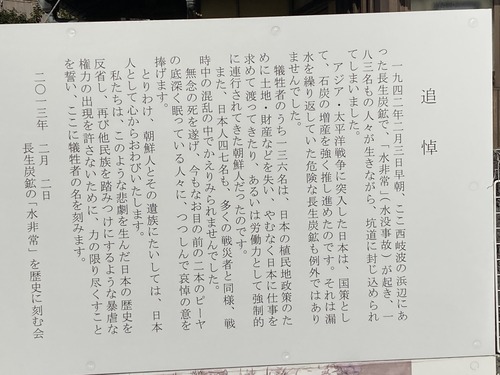 追悼
一九四二年二月三日早朝、ここ西岐波の浜辺にあ
った長生炭鉱で、「水非常」(水没事故)が起き、一
八三名もの人々が生きながら、坑道に封じ込められ
てしまいました。
アジア・太平洋戦争に突入した日本は、国策とし
て、石炭の増産を強く推し進めたのです。それは漏
水を繰り返していた危険な長生炭鉱も例外ではあり
ませんでした。
犠牲者のうち一三六名は、日本の植民地政策のた
めに土地・財産などを失い、やむなく日本に仕事を
求めて渡ってきたり、あるいは労働力として強制的
に連行されてきた朝鮮人だったのです。
また、日本人四七名も、多くの戦災者と同様、戦
時中の混乱の中でかえりみられませんでした。
無念の死を遂げ、今もなお目の前の二本のピーヤ
の底深く眠っている人々に、つつしんで哀悼の意を
捧げます。
とりわけ、朝鮮人とその遺族にたいしては、日本
人として心からおわびいたします。
私たちは、このような悲劇を生んだ日本の歴史を
反省し、再び他民族を踏みつけにするような暴虐な
権力の出現を許さないために、力の限り尽くすこと
を誓い、ここに犠牲者の名を刻みます。
二〇一三年 二月 二日
長生炭鉱の「水非常」を歴史に刻む会